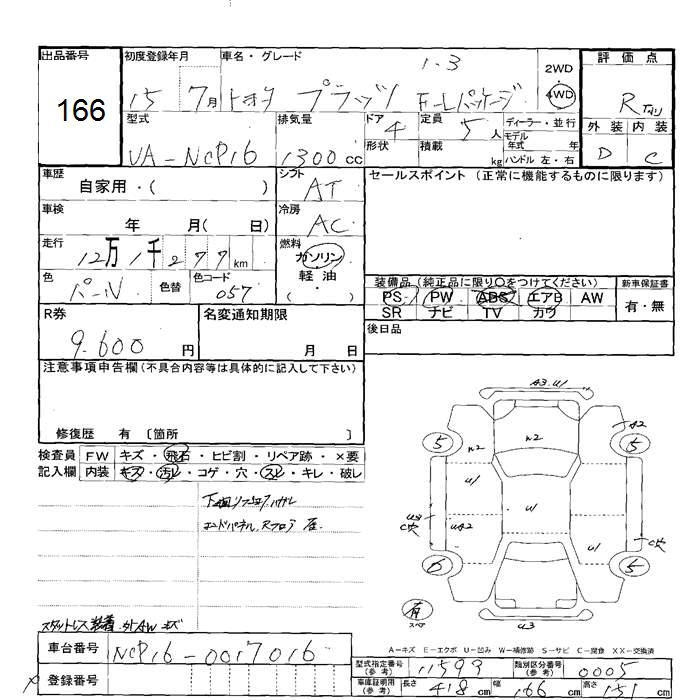 出品番号 初度登録年月 車名・グレード 評価点
166
15 7月 トヨタ プラッツ 1.3 F-Lパッケージ
2WD
4WD
R
型式 排気量 ドア 定員 ディーラー・並行 外装 内装
UA-NCP16 1300CC 4 5人
モデル年式 年
形状 積載 kg ハンドル 左・右
D C
車歴 シフト セールスポイント (正常に機能するものに限ります)
自家用・( ) AT
車検 冷房
年 月( 日) AC
走行 燃料
12万1千277km ガソリン
軽油
( ・ )
色 色替 色コード
パール 057
装備品 (純正品に限り○をつけてください) 新車保証書
PS PW ABS エアB AW 有・無
SR ナビ TV カワ
R券 名変通知期限 後日品
9.600円 月 日
注意事項申告欄 (不具合内容等は具体的に記入して下さい)
修復歴 有 〔箇所 〕
検査員 FW キズ・飛石・ヒビ割・リペア跡・×要
記入欄 内装 キズ・汚レ・コゲ・穴・スレ・キレ・破レ
A3.U1
A2
5 5
W2 W2
U1 U1 U1
U3
C穴
UA2
U1
C穴
5 5
有
スペア
U3
スタットレス装着 外AWキズ
A-キズ E-エクボ U-凹み W-補修跡 S-サビ C-腐食 XX-交換済
車台番号 NCP16-0017016
登録番号
型式指定番号 (参考) 11599 類別区分番号 (参考) 0005
車庫証明用 (参考) 長さ 418cm 幅 166cm 高さ 151cm